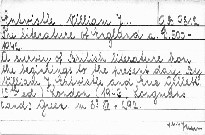 Entwistle William J...
The literature of England a. D. 500-
1942.
A survey of British literature from
the beginnings to the present day. By
William J. Entwistle and Eric Gillett.
2d ed. London 194 Longmans
and Green